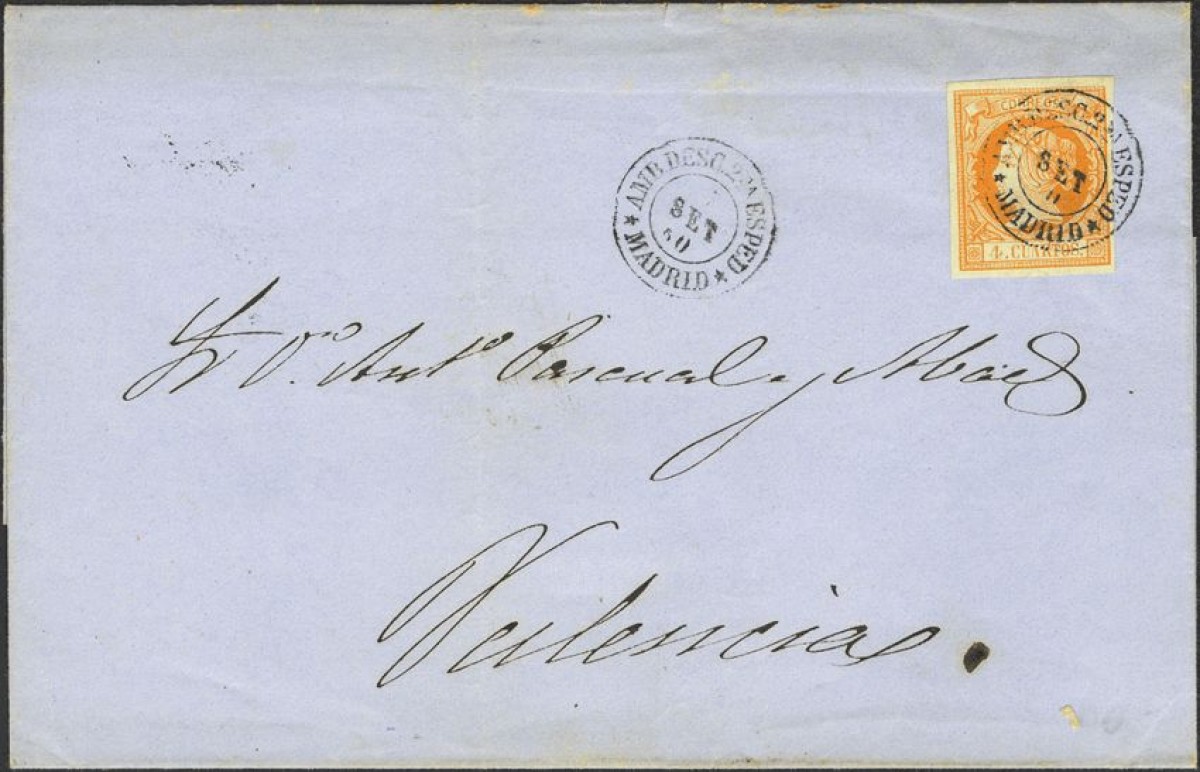 CORREOS
AMB DESC. 2ª ESPED
SET
MADRID
4. CUARTOS.
AMB DESC. 2ª ESPED
SET
60
MADRID
Sr. Dn. Antº Pascual y Abad
Valencia.